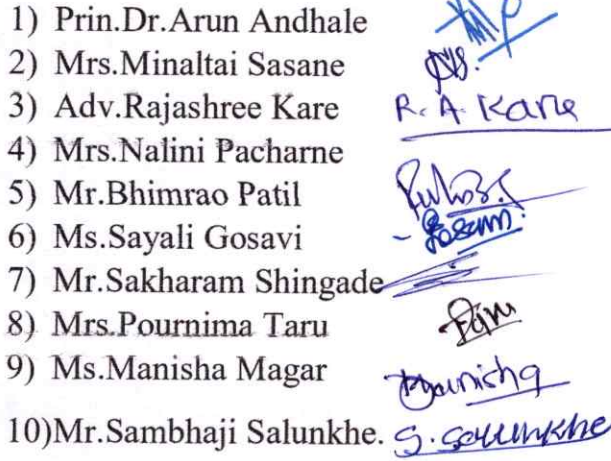 1) Prin.Dr.Arun Andhale
2) Mrs.Minaltai Sasane
3) Adv.Rajashree Kare R. A. Kare
4) Mrs.Nalini Pacharne
5) Mr.Bhimrao Patil
6) Ms.Sayali Gosavi
7) Mr.Sakharam Shingade
8) Mrs.Pournima Taru
9) Ms.Manisha Magar Manisha
10)Mr.Sambhaji Salunkhe. S. Salunkhe